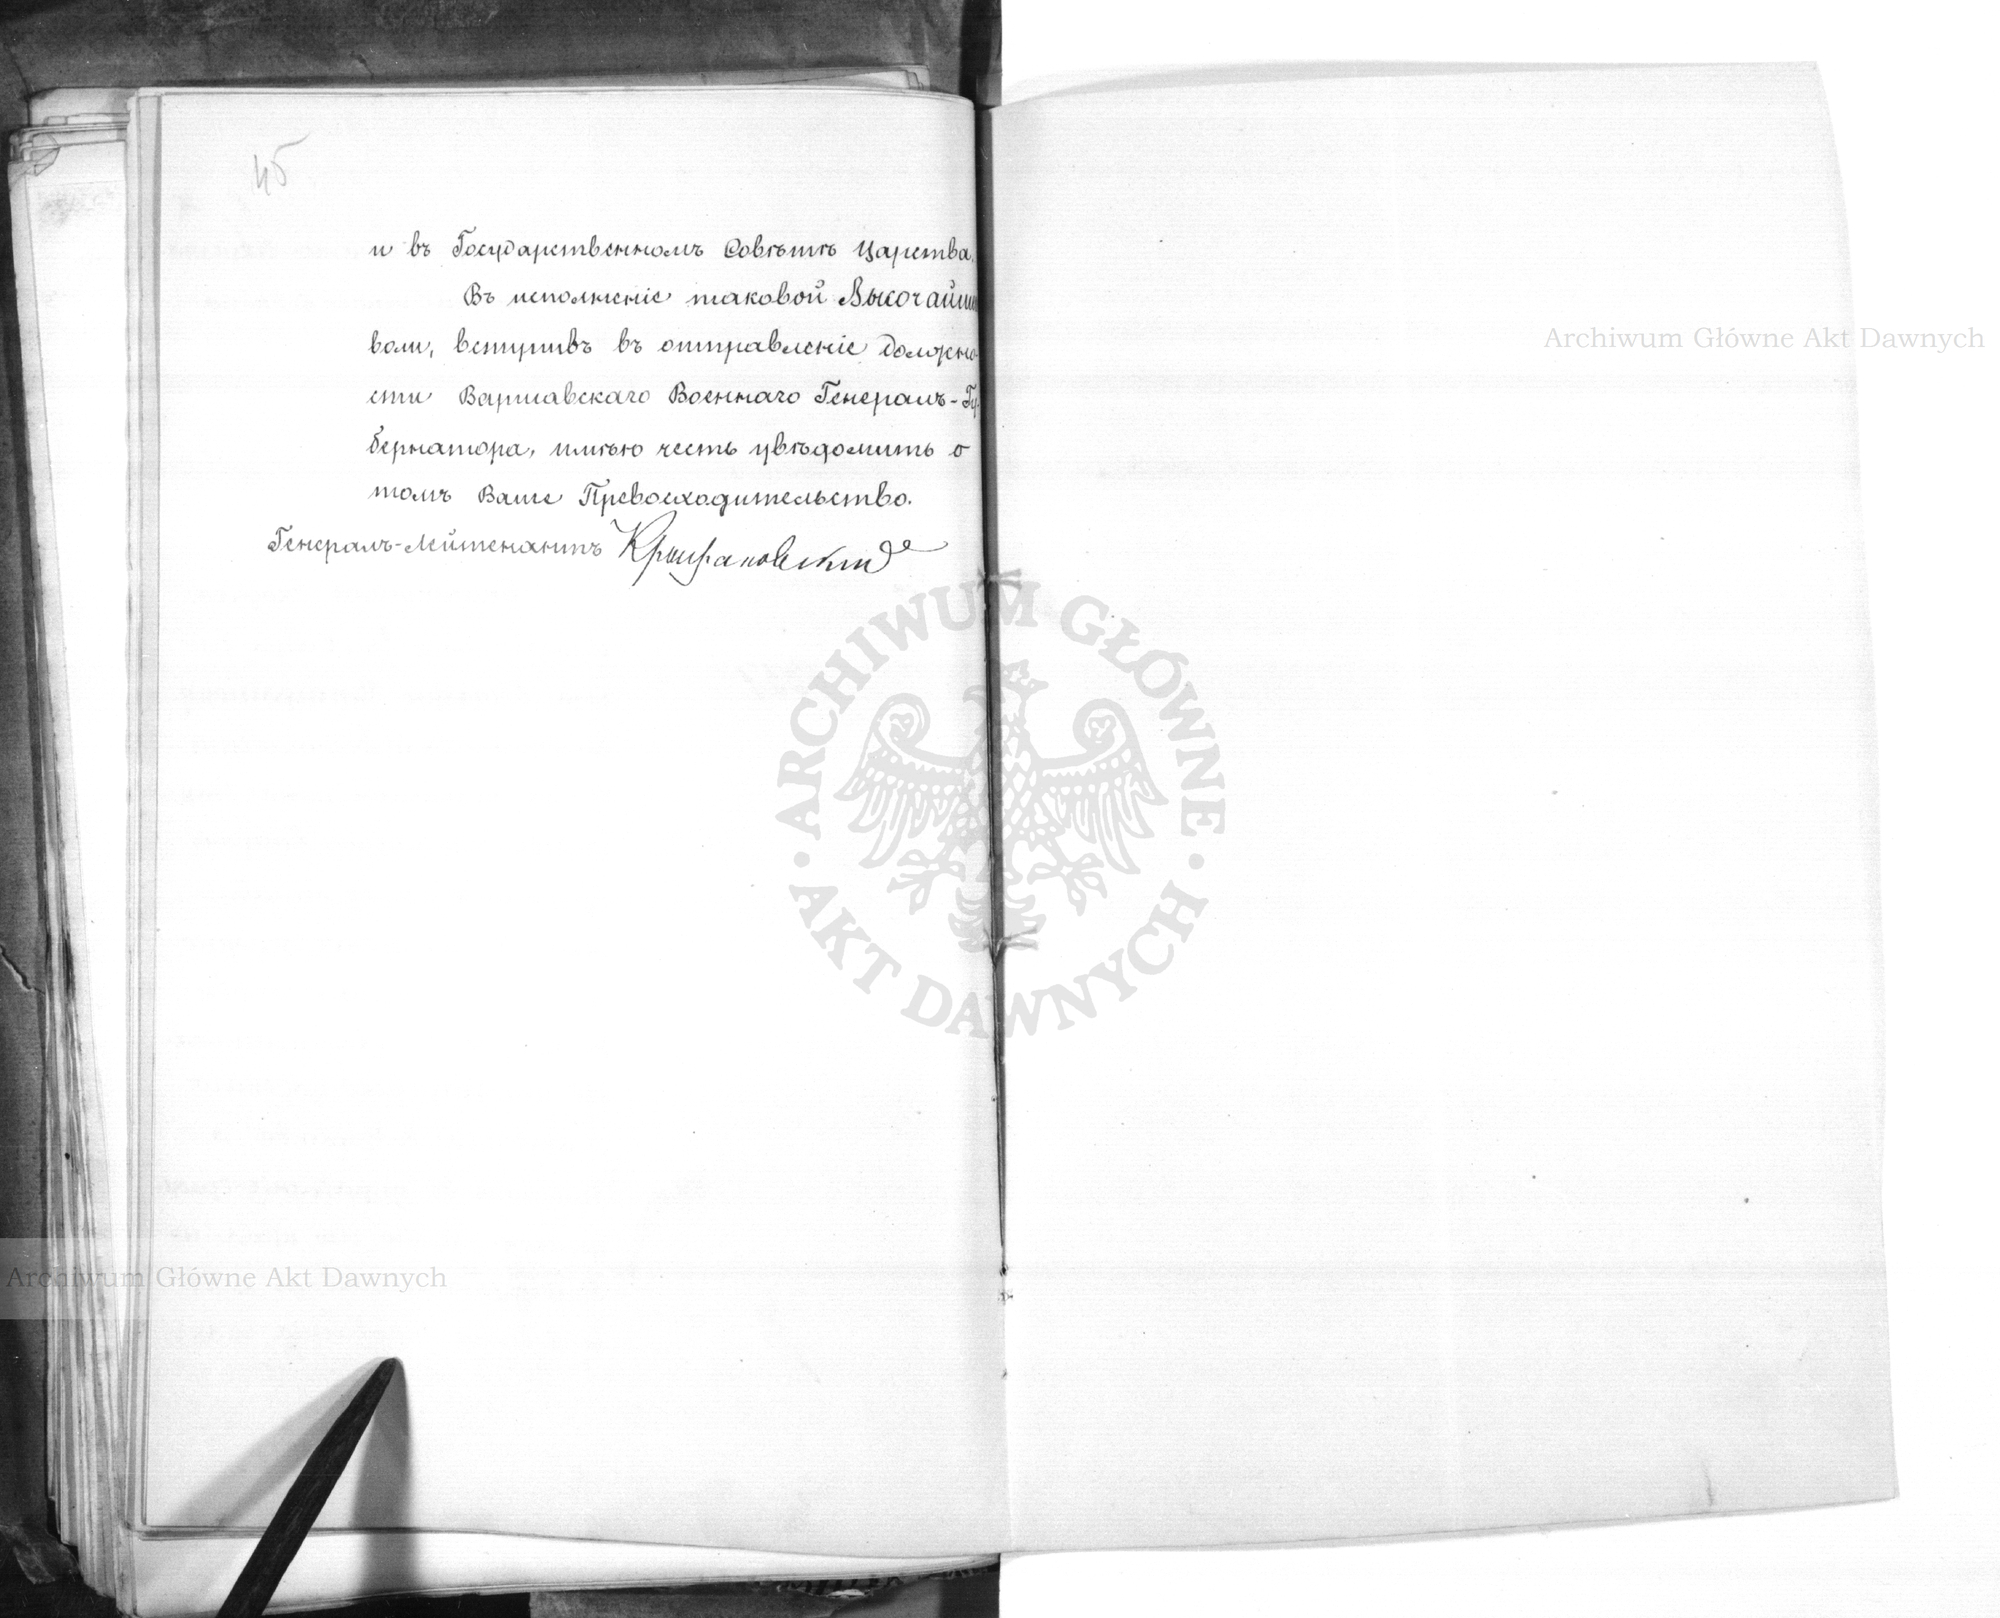 45
и въ Государственномъ Совѣтѣ Царства.
Въ исполненіе таковой Высочайшей
воли, вступивъ въ отправленіе должно-
сти Варшавскаго Военнаго Генералъ-Гу-
бернатора, имѣю честь увѣдомить о
томъ Ваше Превосходительство.
Генералъ-Лейтенантъ Крыжановскій
Archiwum Główne Akt Dawnych
ARCHIWUM GŁÓWNE · AKT DAWNYCH ·
Archiwum Główne Akt Dawnych